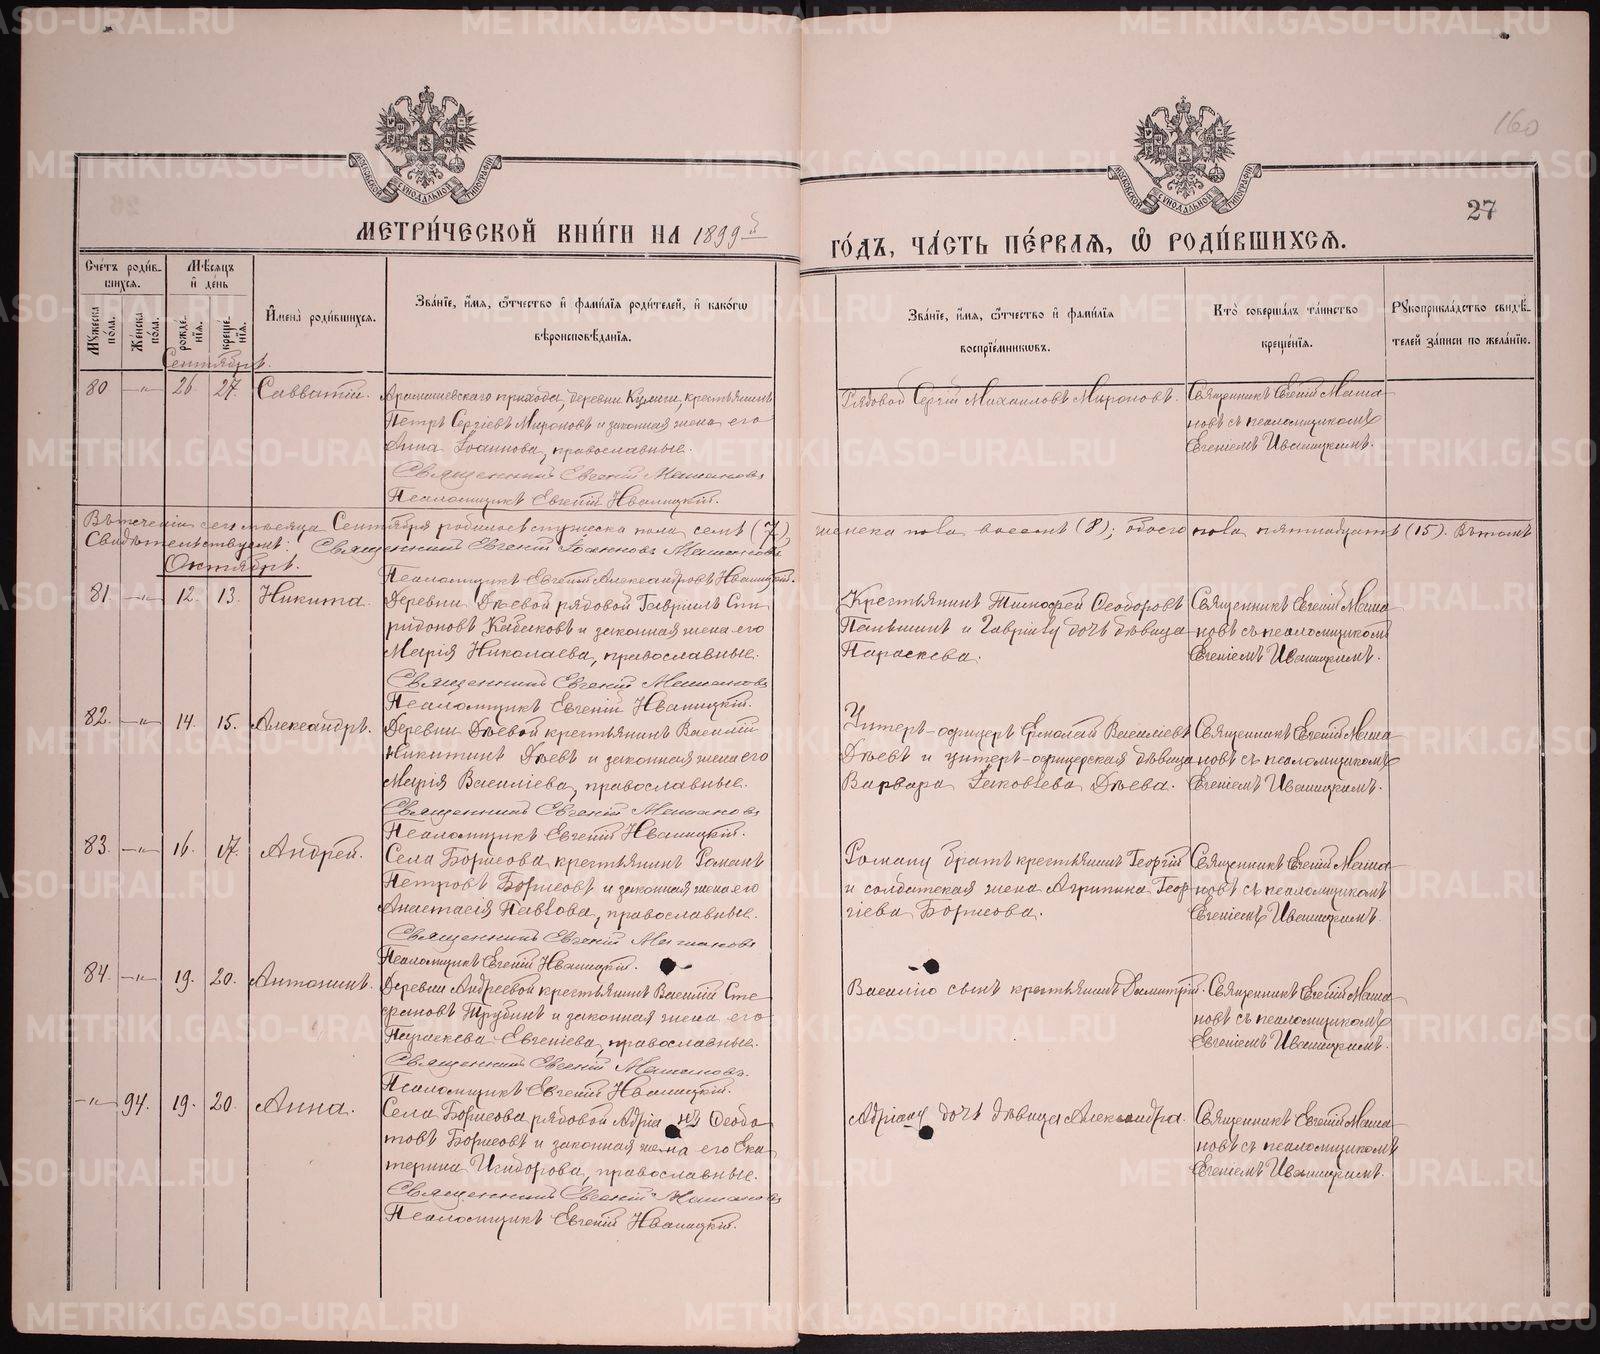 160
27
МОСКОВСКОЙ СѴНОДАЛЬНОЙ ТИПОГРАФІИ
МОСКОВСКОЙ СѴНОДАЛЬНОЙ ТИПОГРАФІИ
МЕТРИ́ЧЕСКОЙ КНИ́ГИ НА 1899й
ГО́ДЪ, ЧА́СТЬ ПЕ́РВАЯ, Ѽ РОДИ́ВШИХСЯ.
Сче́тъ роди́в-
шихся.
Мꙋжеска по́ла.
Же́нска по́ла.
Мѣ́сяцъ
и҆ де́нь
рожде́-
нїѧ.
креще́-
нїѧ.
И҆мена̀ роди́вшихся.
Зва́нїе, и҆́мя, ѻ҆́тчество и҆ фами́лїя роди́телей, и҆ како́гѡ
вѣроисповѣ́данїя.
Зва́нїе, и҆́мя, ѻ҆́тчество и҆ фами́лїя
воспрїе́мниковъ.
Кто̀ соверша́лъ та́инство
креще́нїя.
Рꙋкоприкла́дство свидѣ́-
телей за́писи по жела́нїю.
Сентябрь.
80 —„— 26 27. Савватій.
Арамашевскаго прихода, деревни Кулиги, крестьянинъ
Петръ Сергіевъ Мироновъ и законная жена его
Анна Іоаннова, православные.
Священникъ Евгеній Машановъ
Псаломщикъ Евгеній Иваницкій.
Рядовой Сергій Михаиловъ Мироновъ.
Священникъ Евгеній Маша-
новъ съ псаломщикомъ
Евгеніемъ Иваницкимъ.
Въ теченіи сего мѣсяца Сентября родилось мужеска пола семь (7), женска пола восемь (8); обоего пола пятнадцать (15). Въ томъ
Свидѣтельствуемъ: Священникъ Евгеній Іоанновъ Машановъ
Псаломщикъ Евгеній Александровъ Иваницкій.
Октябрь.
81. —„— 12. 13. Никита.
Деревни Дѣевой рядовой Гавріилъ Спи-
ридоновъ Кабаковъ и законная жена его
Марія Николаева, православные.
Священникъ Евгеній Машановъ
Псаломщикъ Евгеній Иваницкій.
Крестьянинъ Тимофей Ѳеодоровъ
Паньшинъ и Гавріилу дочь дѣвица
Параскева.
Священникъ Евгеній Маша-
новъ съ псаломщикомъ
Евгеніемъ Иваницкимъ.
82. —„— 14. 15. Александръ.
Деревни Дѣевой крестьянинъ Василій
Никитинъ Дѣевъ и законная жена его
Марія Василіева, православные.
Священникъ Евгеній Машановъ
Псаломщикъ Евгеній Иваницкій.
Унтеръ-офицеръ Ермолай Василіевъ
Дѣевъ и унтеръ-офицерская дѣвица
Варвара Іаковлева Дѣева.
Священникъ Евгеній Маша-
новъ съ псаломщикомъ
Евгеніемъ Иваницкимъ.
83. —„— 16. 17. Андрей.
Села Борисова крестьянинъ Романъ
Петровъ Борисовъ и законная жена его
Анастасія Павлова, православные.
Священникъ Евгеній Машановъ
Псаломщикъ Евгеній Иваницкій.
Роману братъ крестьянинъ Георгій
и солдатская жена Агрипина Геор-
гіева Борисова.
Священникъ Евгеній Маша-
новъ съ псаломщикомъ
Евгеніемъ Иваницкимъ.
84. —„— 19. 20. Антонинъ.
Деревни Андреевой крестьянинъ Василій Сте-
фановъ Трубинъ и законная жена его
Параскева Евгеніева, православные.
Священникъ Евгеній Машановъ.
Псаломщикъ Евгеній Иваницкій.
Василію сынъ крестьянинъ Димитрій.
Священникъ Евгеній Маша-
новъ съ псаломщикомъ
Евгеніемъ Иваницкимъ.
—„— 94. 19. 20. Анна.
Села Борисова рядовой Адріанъ Ѳеодо-
товъ Борисовъ и законная жена его Ека-
терина Исидорова, православные.
Священникъ Евгеній Машановъ
Псаломщикъ Евгеній Иваницкій.
Адріану дочь дѣвица Александра.
Священникъ Евгеній Маша-
новъ съ псаломщикомъ
Евгеніемъ Иваницкимъ.
METRIKI.GASO-URAL.RU